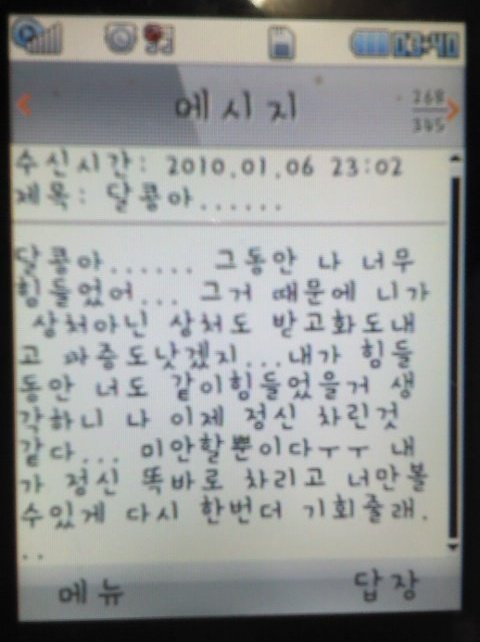 03:40
메시지
268
345
수신시간: 2010.01.06 23:02
제목: 달콩아......
달콩아...... 그동안 나 너무
힘들었어... 그거 때문에 니가
상처아닌 상처도 받고화도내
고 짜증도낫겠지...내가 힘들
동안 너도 같이힘들었을거 생
각하니 나 이제 정신 차린것
같다... 미안할뿐이다ㅜㅜ 내
가 정신 똑바로 차리고 너만볼
수있게 다시 한번더 기회줄래.
..
메뉴
답장